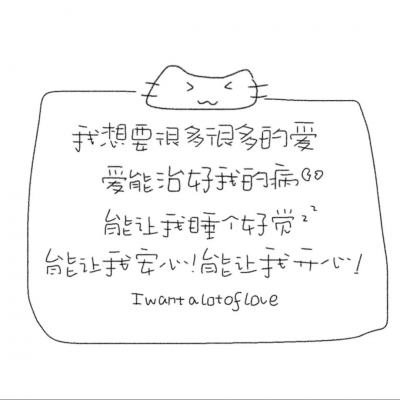 我想要很多很多的爱
爱能治好我的病
能让我睡个好觉zz
能让我安心!能让我开心!
I want a lot of love